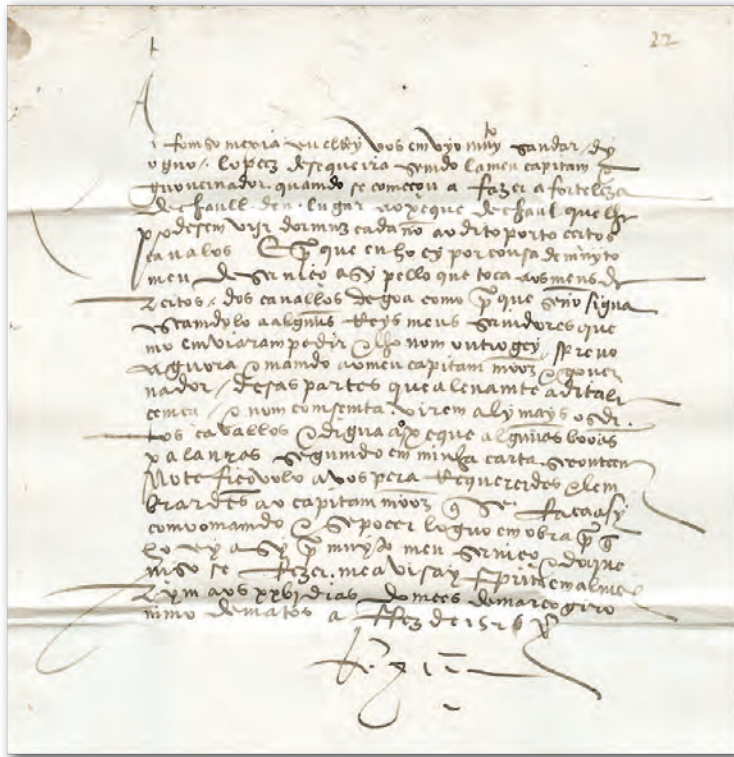 22
Afomso mexia nu elRey vos emvyo muyto saudar / dy
oguo / lopez desequeira semdo la meu capitam &
guovernador. quamdo se começou a fazer a forteleza
de chaull. deu. lugar ao xeque de chaul que lhe
podesem vijr dormuz cadano ao dito porto certos
cavalos E que eu hey por cousa de muyto
meu deserviço asy pello que toca aos meus de
reitos. dos cavallos de goa como que senão sigua
escamdylo a alguns Reys meus servidores que
mo emviaram pedir & lho nom outrogey. screvo
aguora & mamdo ao meu capitam moor & gover
nador / desas partes que alevamte a dita li
cemça / & nom comsemta. virem aly mays os di
tos cavallos & digua ao xeque alguuas booas
palavras segumdo em minha carta. se conteem
Notefico volo a vos pera Requererdes & lem
brardes ao capitam moor que se faça asy
como mamdo & se poer loguo em obra
ho ey asy muyto meu serviço & do que
niso se fezer. me avisay sprita em alme
rym aos xxbj dias do mees de março giro
nimo de matos a fez de 1526
Rey